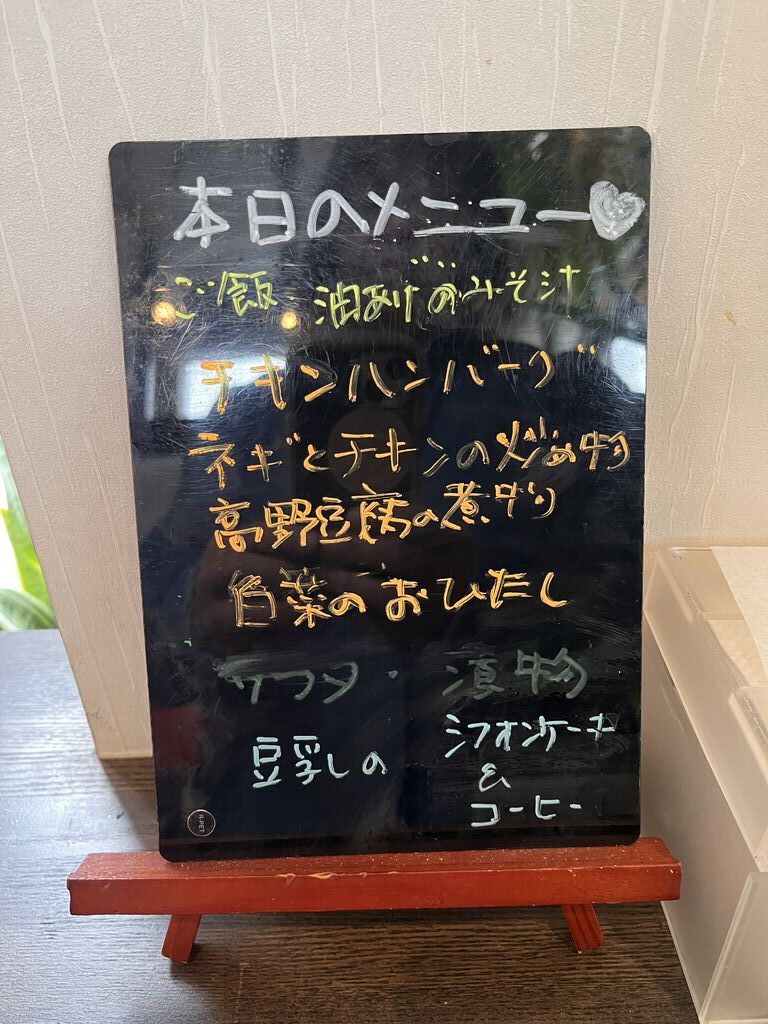 本日のメニュー♥
ご飯・油あげのみそ汁
チキンハンバーグ
ネギとチキンの炒め物
高野豆腐の煮物
白菜のおひたし
サラダ・漬物
豆乳しの シフォンケーキ
&
コーヒー
A-PET